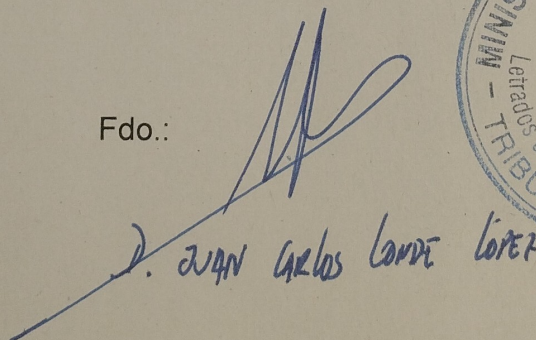 Fdo.:
D. JUAN CARLOS CONDE LÓPEZ
MINIS
Letrados
TRIBU